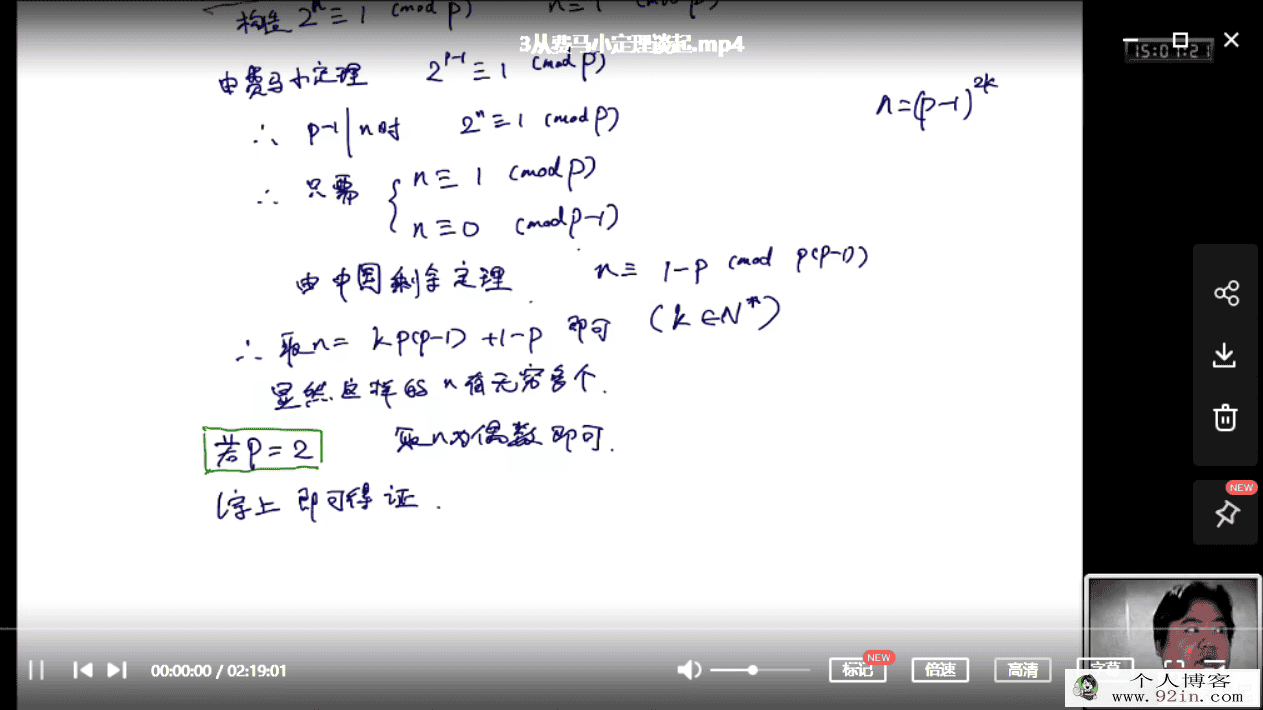 构造 2^n ≡ 1 (mod p) n ≡ 1 (mod p)
3从费马小定理谈起.mp4
15:07:21
由费马小定理 2^{p-1} ≡ 1 (mod p)
n=(p-1)^{2k}
∴ p-1|n时 2^n ≡ 1 (mod p)
∴ 只需 { n ≡ 1 (mod p)
n ≡ 0 (mod p-1)
由中国剩余定理 n ≡ 1-p (mod p(p-1))
∴ 取n= kp(p-1)+1-p 即可 (k∈N*)
显然这样的n有无穷多个.
若p=2 取n为偶数即可.
综上即可得证.
NEW
NEW
00:00:00 / 02:19:01
标记
倍速
高清
字幕
个人博客
www.92in.com